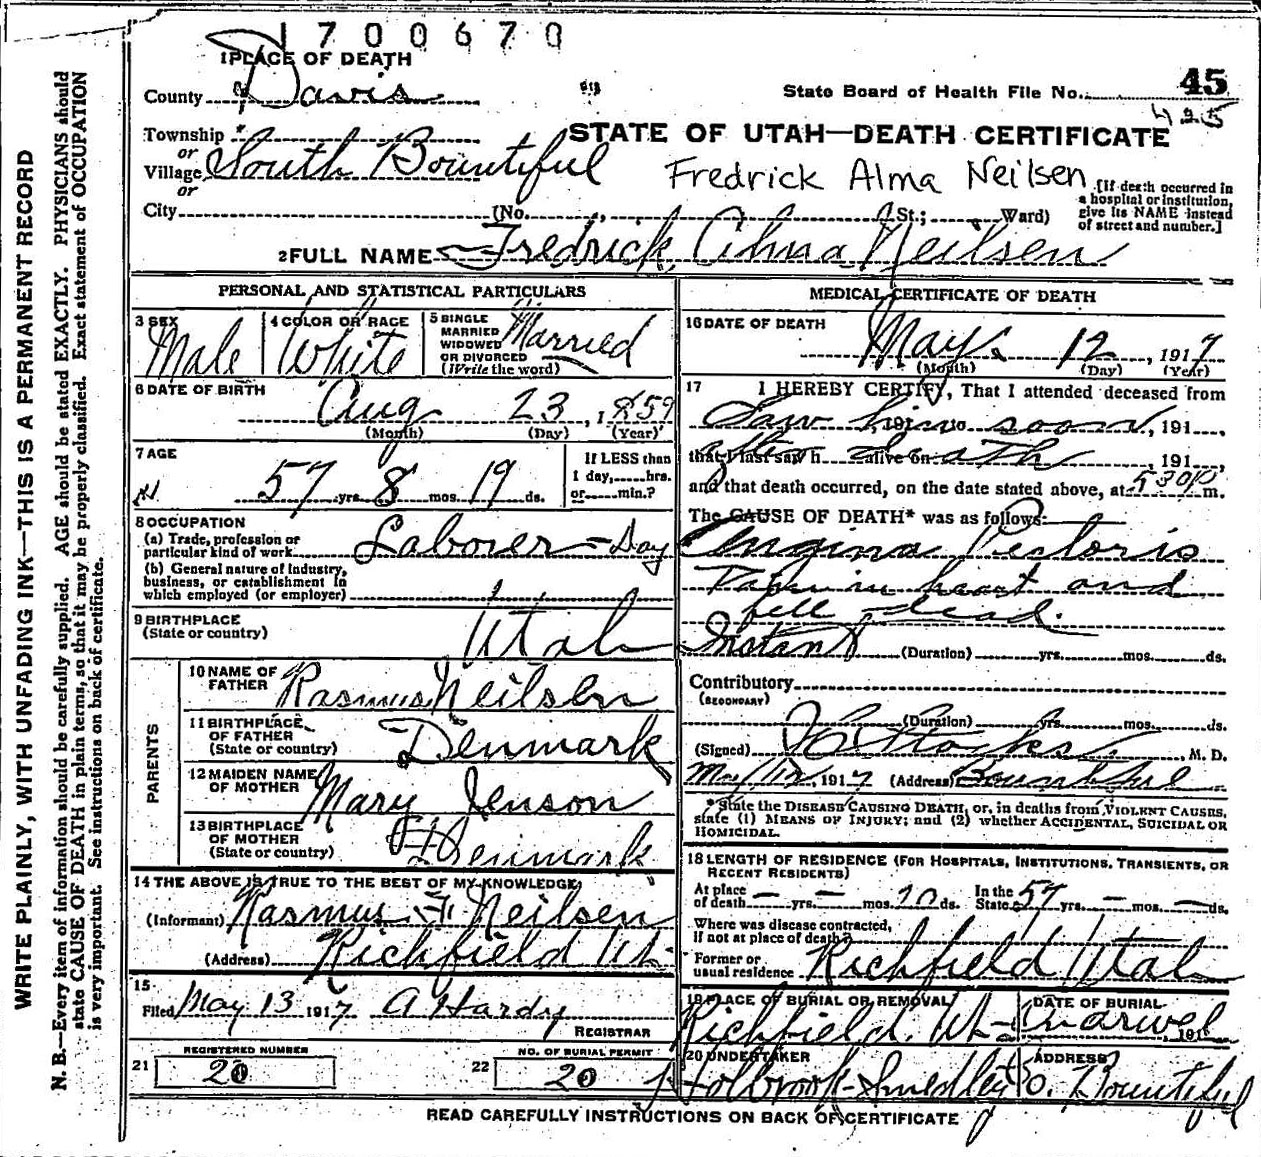 1700670
1 PLACE OF DEATH
County Davis
State Board of Health File No. 45
425
Township
or
Village South Bountiful
or
STATE OF UTAH—DEATH CERTIFICATE
Fredrick Alma Neilsen
City (No. , St.; Ward)
[If death occurred in
a hospital or institution,
give its NAME instead
of street and number.]
2 FULL NAME Fredrick Alma Neilsen
PERSONAL AND STATISTICAL PARTICULARS
3 SEX Male
4 COLOR OR RACE White
5 SINGLE
MARRIED
WIDOWED
OR DIVORCED
(Write the word)
Married
6 DATE OF BIRTH
Aug 23, 1859
(Month) (Day) (Year)
7 AGE
57 yrs. 8 mos. 19 ds.
If LESS than
1 day, hrs.
or min.?
8 OCCUPATION
(a) Trade, profession or
particular kind of work Laborer - Day
(b) General nature of industry,
business, or establishment in
which employed (or employer)
9 BIRTHPLACE
(State or country) Utah
PARENTS
10 NAME OF
FATHER Rasmus Neilsen
11 BIRTHPLACE
OF FATHER
(State or country) Denmark
12 MAIDEN NAME
OF MOTHER Mary Jenson
13 BIRTHPLACE
OF MOTHER
(State or country) Denmark
14 THE ABOVE IS TRUE TO THE BEST OF MY KNOWLEDGE
(Informant) Rasmus F. Neilsen
(Address) Richfield Ut.
15
Filed May 13 1917 A Hardy
REGISTRAR
21 REGISTERED NUMBER
20
22 NO. OF BURIAL PERMIT
20
MEDICAL CERTIFICATE OF DEATH
16 DATE OF DEATH
May 12, 1917
(Month) (Day) (Year)
17 I HEREBY CERTIFY, That I attended deceased from
Saw him soon, 191 ,
that I last saw h alive on , 191 ,
after death
and that death occurred, on the date stated above, at 530 P m.
The CAUSE OF DEATH* was as follows:
Angina Pectoris
Taken in heart and
fell dead.
Instant (Duration) yrs. mos. ds.
Contributory
(SECONDARY)
(Duration) yrs. mos. ds.
(Signed) Stocks, M. D.
May 12, 1917 (Address) Bountiful
*State the DISEASE CAUSING DEATH, or, in deaths from VIOLENT CAUSES,
state (1) MEANS OF INJURY; and (2) whether ACCIDENTAL, SUICIDAL OR
HOMICIDAL.
18 LENGTH OF RESIDENCE (FOR HOSPITALS, INSTITUTIONS, TRANSIENTS, OR
RECENT RESIDENTS)
At place
of death — yrs. — mos. 20 ds.
In the
State 57 yrs. — mos. — ds.
Where was disease contracted,
if not at place of death?
Former or
usual residence Richfield Utah
19 PLACE OF BURIAL OR REMOVAL
Richfield. Ut.
DATE OF BURIAL
, 191
20 UNDERTAKER
Holbrook-Smedley
ADDRESS
So. Bountiful
READ CAREFULLY INSTRUCTIONS ON BACK OF CERTIFICATE
WRITE PLAINLY, WITH UNFADING INK—THIS IS A PERMANENT RECORD
N. B.—Every item of information should be carefully supplied. AGE should be stated EXACTLY. PHYSICIANS should
state CAUSE OF DEATH in plain terms, so that it may be properly classified. Exact statement of OCCUPATION
is very important. See instructions on back of certificate.